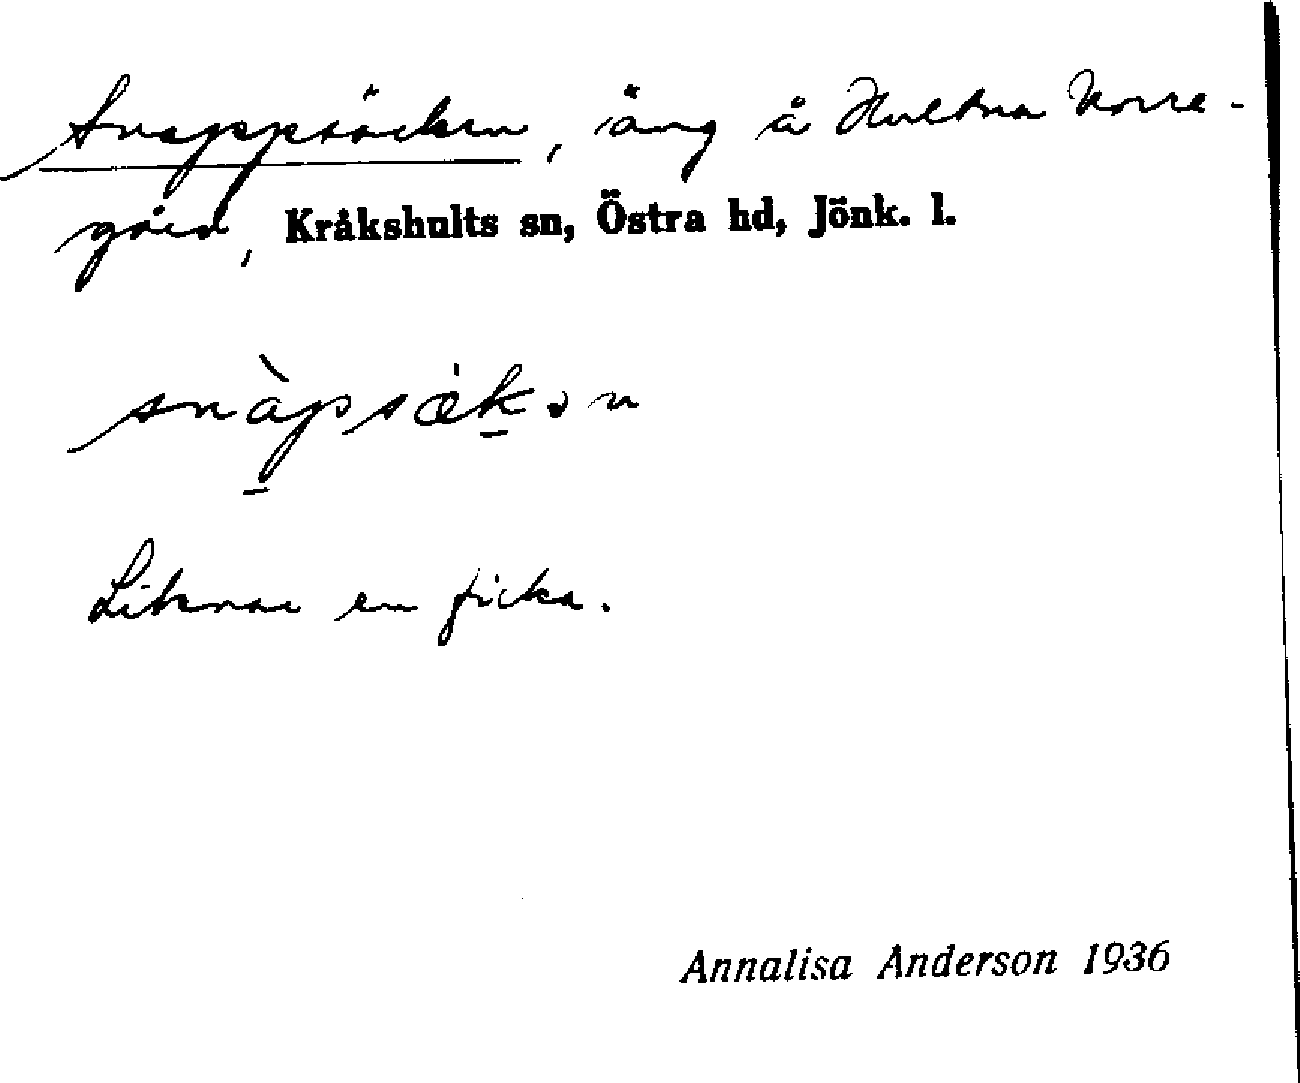 Snappsäcken, äng å Hultna Norre-
gård, Kråkshults sn, Östra hd, Jönk. l.
snàpsæ̀kən
Liknar en ficka.
Annalisa Anderson 1936